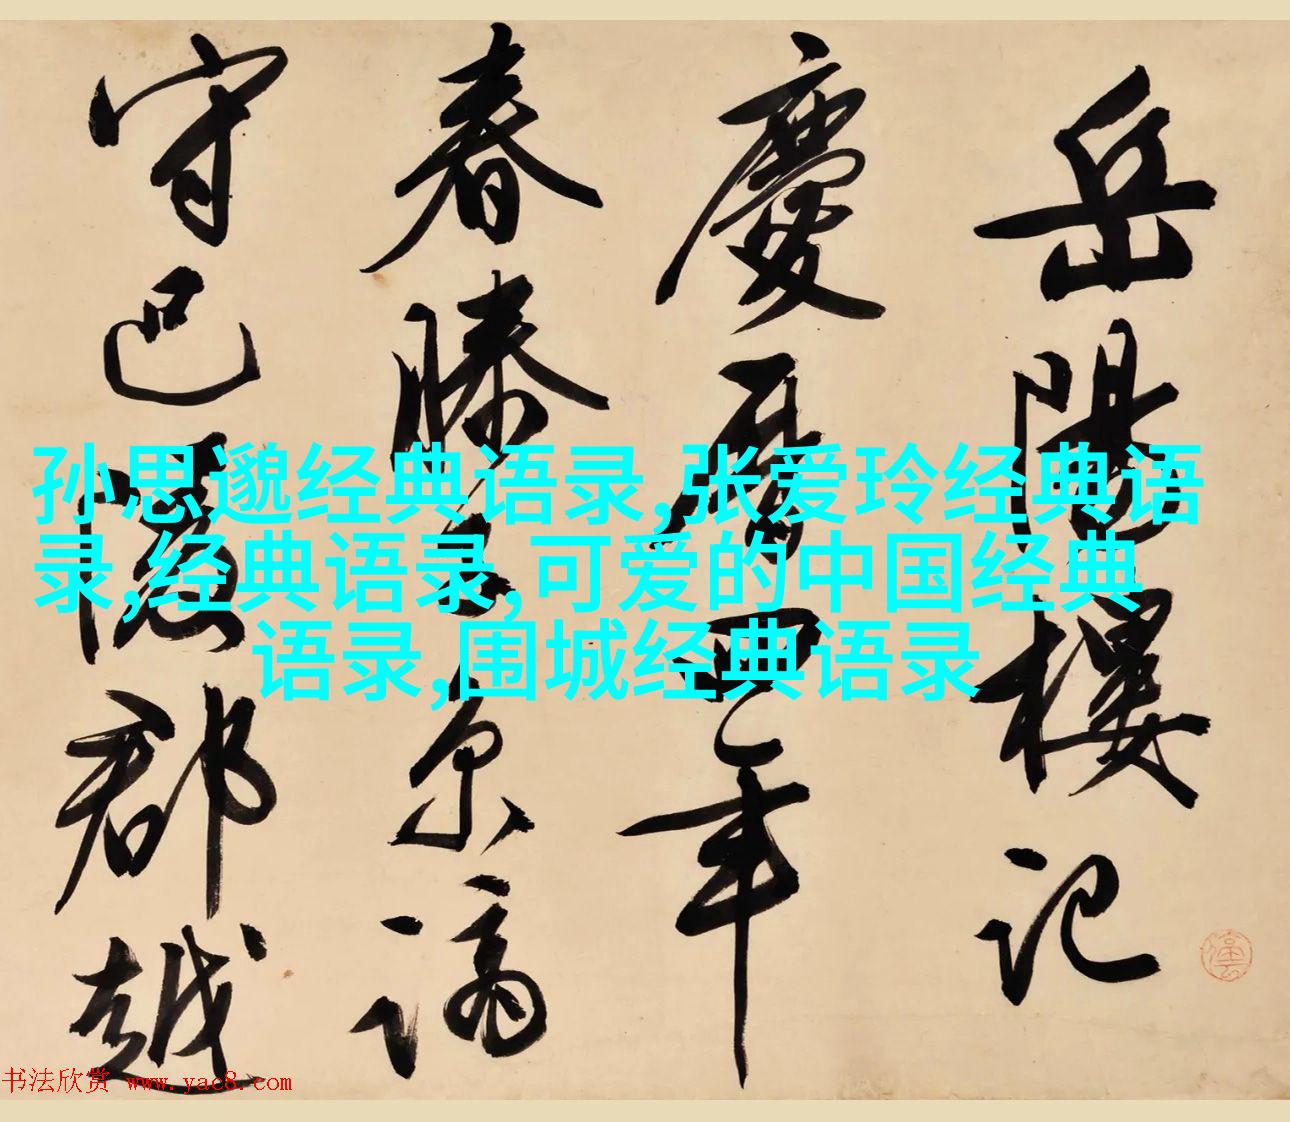 岳陽樓記
慶曆四年
春滕子京謫
守巴陵郡越
孙思邈经典语录,张爱玲经典语
录,经典语录,可爱的中国经典
语录,围城经典语录
书法欣赏 www.yac8.com